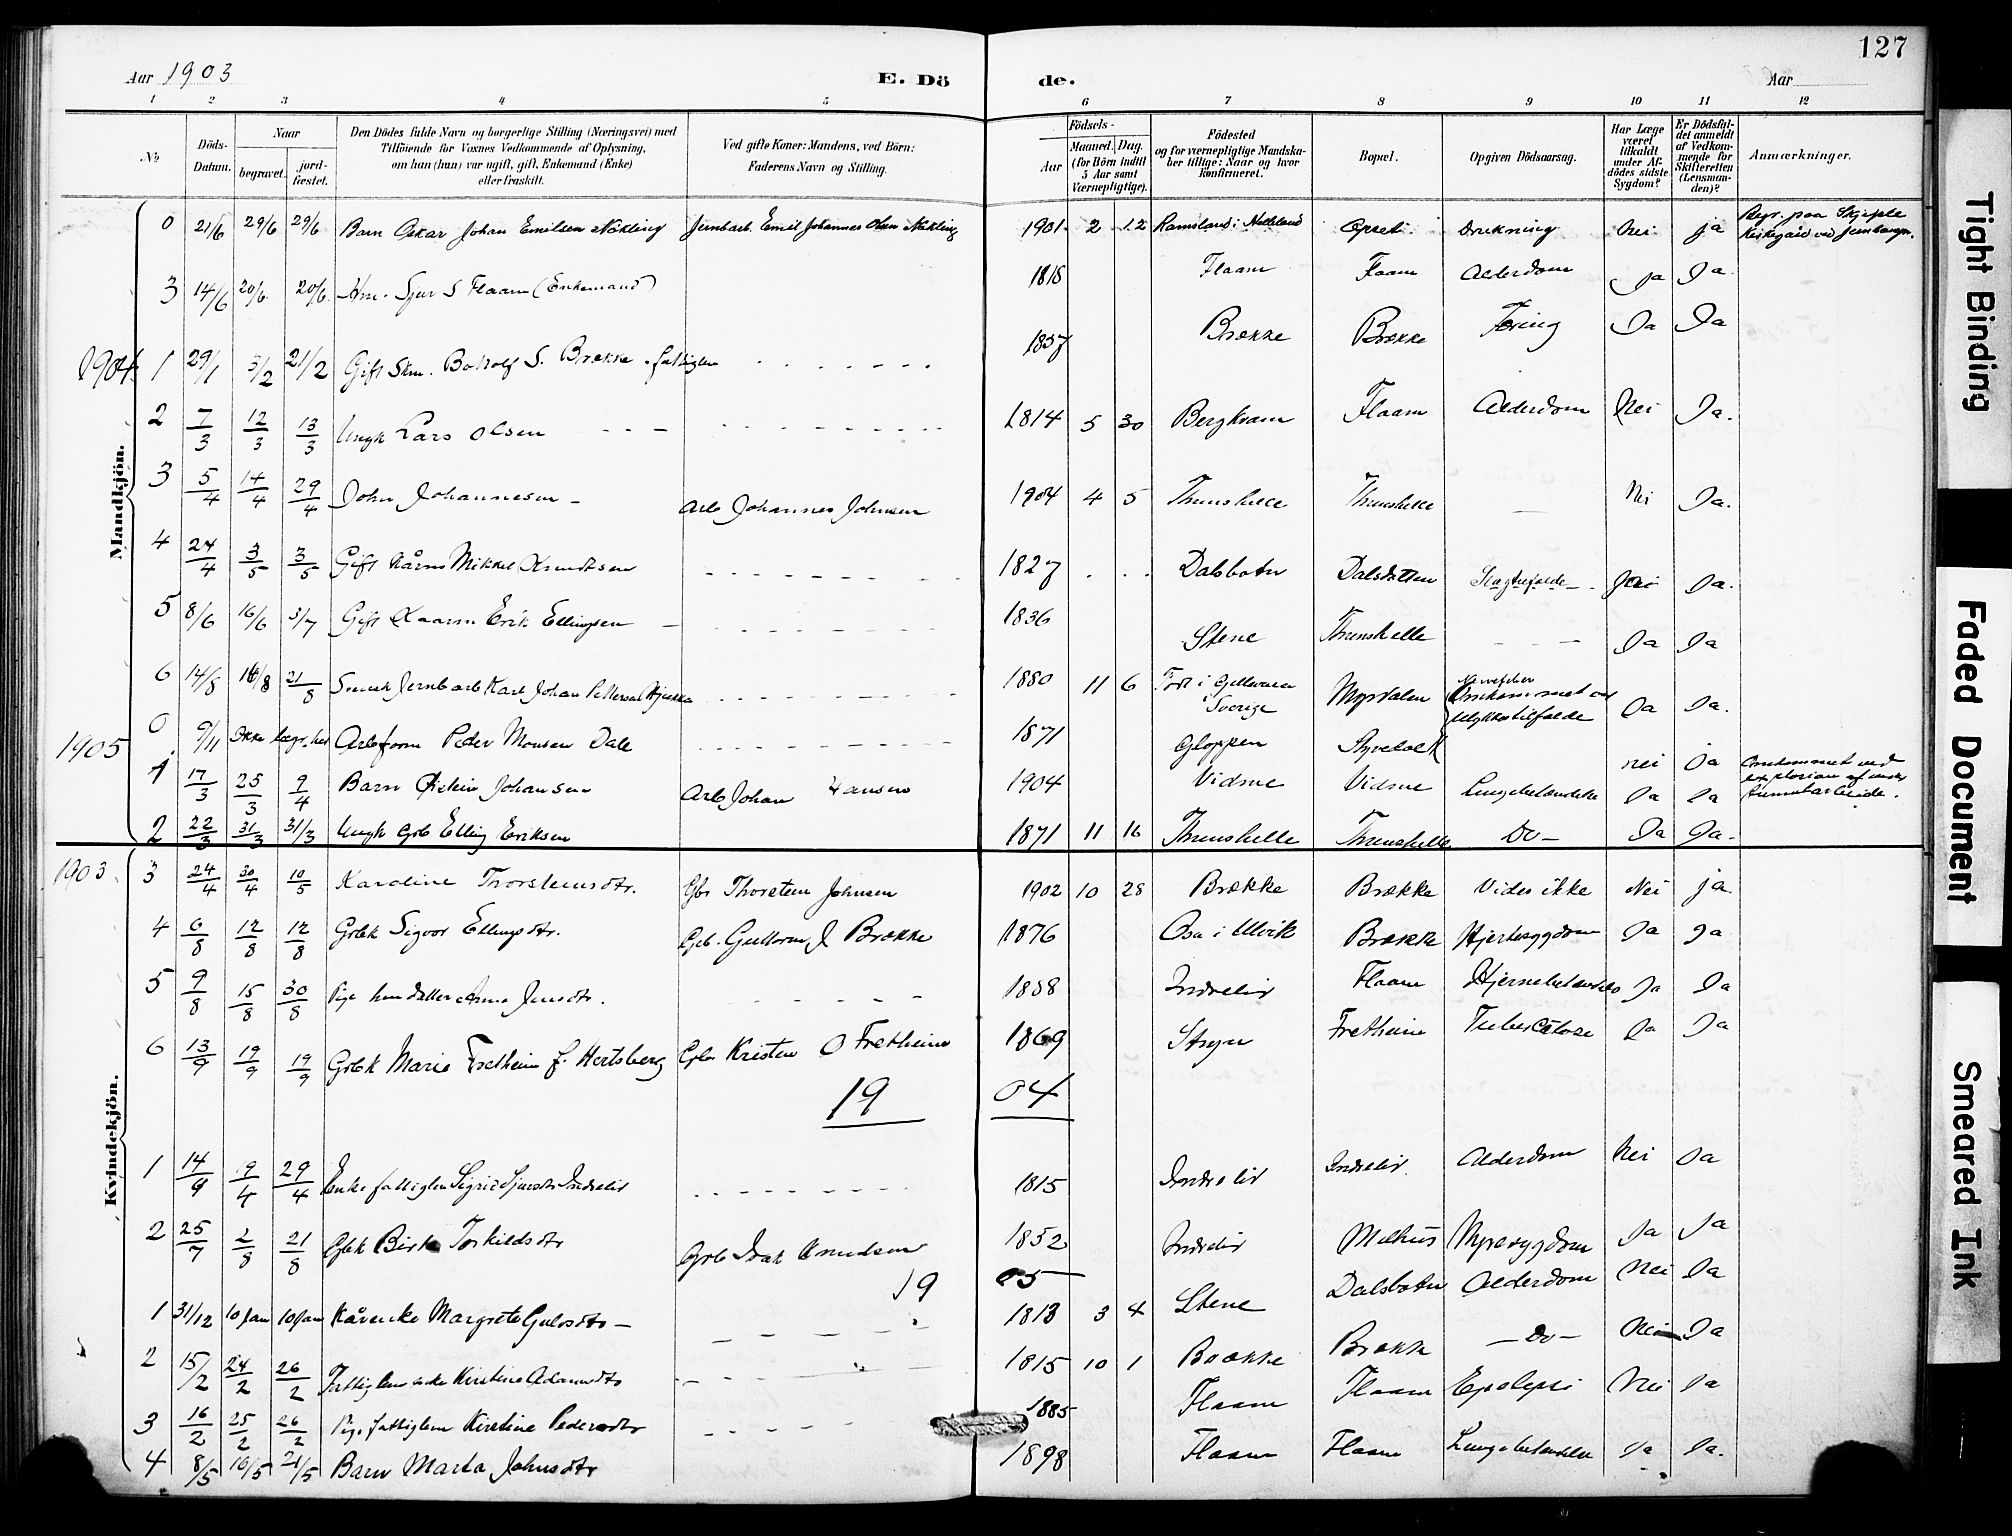 127
Aar 1903 E. Dö de. Aar
1 2 3 4 5 6 7 8 9 10 11 12
No Döds-Datum. Naar begravet. jord-fæstet. Den Dödes fulde Navn og borgerlige Stilling (Næringsvei) med Tilföiende for Voxnes Vedkommende af Oplysning, om han (hun) var ugift, gift, Enkemand (Enke) eller fraskilt. Ved gifte Koner: Mandens, ved Börn: Faderens Navn og Stilling. Födsels- Aar Maaned. Dag. (for Börn indtil 5 Aar samt Værnepligtige). Födested og for værnepligtige Mandskaber tillige: Naar og hvor konfirmeret. Bopæl. Opgiven Dödsaarsag. Har Læge været tilkaldt under Afdödes sidste Sygdom? Er Dödsfaldet anmeldt af Vedkommende for Skifteretten (Lensmanden)? Anmærkninger.
Mandkjön.
0 21/6 29/6 29/6 Barn Oskar Johan Emilsen Nökling Jernbarb. Emil Johannes Olsen Nökling 1901 2 12 Ramsland i Opset Drukning Nei ja Begr. paa Skjeple Kirkegård ved
3 14/6 20/6 20/6 Km. Sjur S Flaam (Enkemand) 1818 Flaam Flaam Alderdom Ja Ja
1904 1 29/1 3/2 21/2 Gift Skm. Botolf S. Brække fattiglem 1857 Brække Brække Tæring Ja Ja
2 7/3 12/3 13/3 Ungk Lars Olsen 1814 5 30 Bergkvam Flaam Alderdom Nei Ja.
3 5/4 14/4 29/4 John Johannesen - Arb Johannes Johnsen 1904 4 5 Thunshelle Thunshelle — Nei Ja.
4 24/4 3/5 3/5 Gift Kårm Mikkel Knudtsen 1827 Dalsbotn Dalsbotten Slagtilfælde Nei Ja.
5 8/6 16/6 3/7 Gift Kaarm Erik Ellingsen 1836 Stene Thunshelle — — Ja Ja
6 14/8 16/8 21/8 Svensk Jernbarb Karl Johan Petterson 1880 11 6 Født i Gellivara Sverige Myrdalen Omkommet ved Ulykkestilfælde Ja Ja.
0 9/11 Ikke begr. her Arbeform Peder Monsen Dale 1871 Gloppen nei Ja Omkommet ved explosion af under tunnelarbeide.
1905 1 17/3 25/3 9/4 Barn Øistein Johansen Arb Johan Hansen 1904 Vidme Vidme Lungebetændelse Ja Ja
2 22/3 31/3 31/3 Ungk Grb Elling Eriksen 1871 11 16 Thunshelle Thunshelle Do — Ja Ja.
Kvindekjön.
1903 3 24/4 30/4 10/5 Karoline Thorsteinsdtr. Gbr Thorsten Johnsen 1902 10 28 Brække Brække Vides ikke Nei ja.
4 6/8 12/8 12/8 Grbk Sigvor Ellingsdtr. Grb. Guttorm J Brække 1876 Osa i Ulvik Brække Hjertesygdom Ja Ja
5 9/8 15/8 30/8 Pige husdatter Anna Jensdtr. 1858 Indrelid Flaam Hjernebetændelse Ja Ja
6 13/9 19/9 19/9 Grbk Marie Fretheim f. Hertsberg Gbr Kristen O Fretheim 1869 Stryn Fretheim Tuberculose Ja Ja
1904
1 14/4 19/4 29/4 Enke fattiglem Sigrid Sjursdtr Indrelid 1815 Indrelid Indrelid Alderdom Nei Ja
2 25/7 2/8 21/8 Gbk Birte Torkildsdtr Grb Isak Knudsen 1852 Indrelid Melhus Mavesygdom Ja Ja
1905
1 31/12 10 Jan 10 Jan Kårenke Margrete Gulosdtr — 1813 3 4 Stene Dalsbotn Alderdom Nei Ja
2 15/2 24/2 26/2 Fattiglem enke Kirstine Adamsdtr 1815 10 1 Brække Brække — Do — Nei Ja
3 16/2 25/2 26/2 Pige fattiglem Kirstine Pedersdtr 1885 Flaam Flaam Epelepsi Nei Ja
4 8/5 16/5 21/5 Barn Marta Johnsdtr 1898 Flaam Flaam Lungebetændelse Ja Ja.
Tight Binding
Faded Document
Smeared Ink